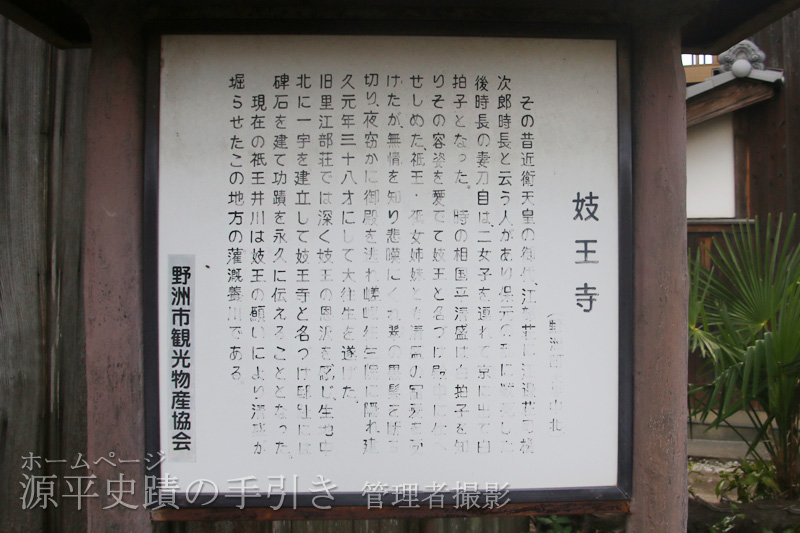 妓王寺
北
その昔近衛天皇の御代、江部荘に
次郎時長と云う人があり保元の乱に
後時長の妻刀自は、二女子を連れて京に出で白
拍子となった。時の相国平清盛は白拍子を知
りその容姿を愛でて妓王と名づけ殿中に
せしめた。祇王・祇女姉妹とも清盛の寵愛をう
けたが、無情を知り悲嘆にくれ翠の黒髪を
切り、夜窃かに御殿を逃れ嵯峨往生院に隠れ建
久元年三十八才にして大往生を遂げた。
旧里江部荘では深く妓王の恩沢を感じ、生地中
北に一宇を建立して妓王寺と名づけ邸址には
碑石を建て功蹟を永久に伝えることとなった。
現在の祇王井川は妓王の願いにより清盛が
堀らせたこの地方の灌漑養川である。
野洲市観光物産協会
ホームページ
源平史蹟の手引き 管理者撮影